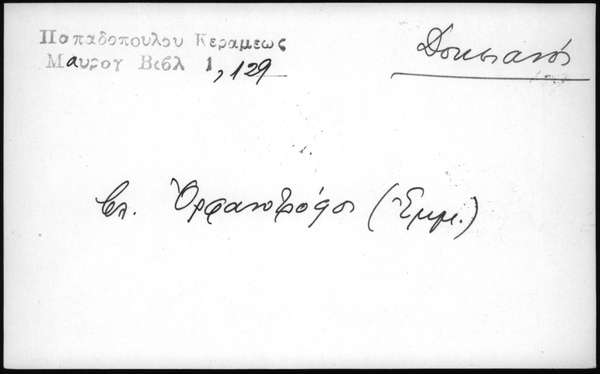 Παπαδοπουλου Κεραμεως
Μαυρογ Βιβλ 1, 129
Δοκιανός
βλ. Ὀρφανοτρόφοι (Ἐμμ.)